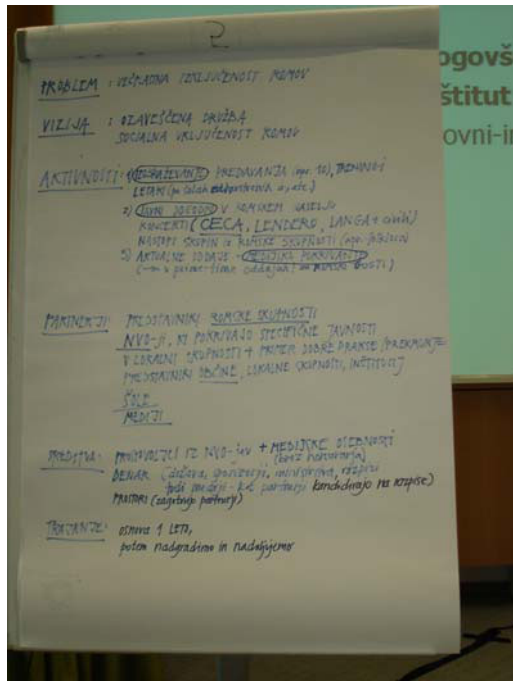 2
PROBLEM: VEČPLASTNA IZKLJUČENOST ROMOV
VIZIJA: OZAVEŠČENA DRUŽBA
SOCIALNA VKLJUČENOST ROMOV
AKTIVNOSTI: 1) IZOBRAŽEVANJE PREDAVANJA (npr. 10), TRENINGI
LETAKI (po šolah
2) JAVNI DOGODKI V ROMSKEM NASELJU
KONCERTI (CECA, LENDERO, LANGA +
NASTOPI SKUPIN iz ROMSKE SKUPNOSTI (npr. folklora)
3) AKTUALNE ODDAJE - MEDIJSKA POKRIVANJA
oddajah! ROMSKI GOSTI)
PARTNERJI: PREDSTAVNIKI ROMSKE SKUPNOSTI
NVO-ji, KI POKRIVAJO SPECIFIČNE JAVNOSTI
V LOKALNI SKUPNOSTI + PRIMER DOBRE PRAKSE /PREKMURJE
PREDSTAVNIKI OBČINE, LOKALNE SKUPNOSTI, INŠTITUCIJ
ŠOLE
MEDIJI
SREDSTVA: PROSTOVOLJCI IZ NVO-jev + MEDIJSKE OSEBNOSTI
(brez honorarja)
DENAR (država, sponzorji, ministrstva, razpisi
tudi mediji - kot partnerji kandidirajo na razpise)
PROSTORI (zagotovijo partnerji)
TRAJANJE: osnova 1 LETO,
potem nadgradimo in nadaljujemo
ogovš
štitut
ovni-in